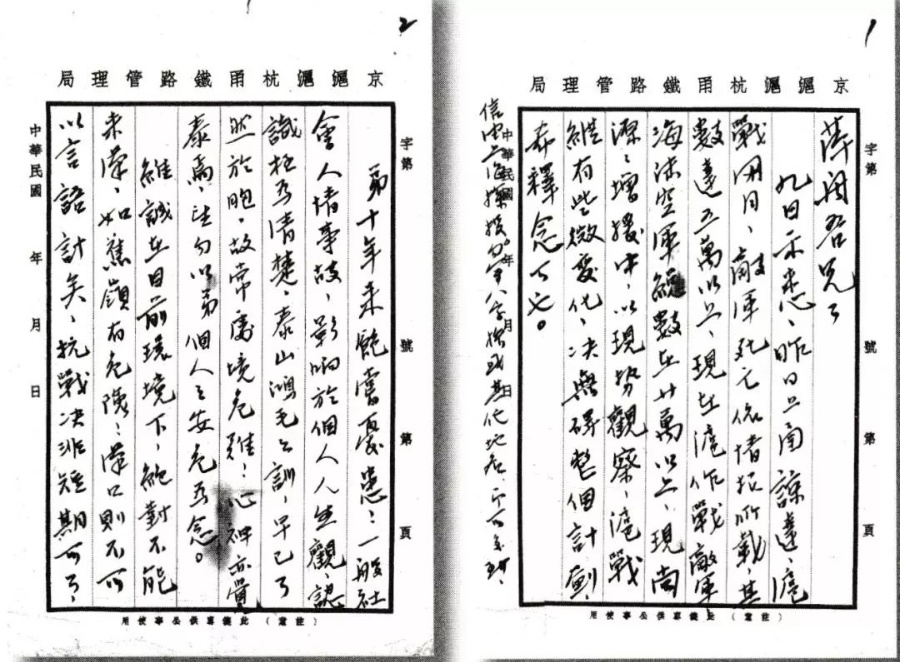 1
京滬滬杭甬鐵路管理局
字第 號第 頁
萍舟吾兄：
九日示悉、昨日上函諒達、滬
戰兩月、敵軍死亡依情報所載其
數達五萬以上、現在滬作戰敵軍
海陸空軍總數在廿萬以上、現尚
源源增援中、以現勢觀察、滬戰
縱有些微變化、決無碍整個計劃
希釋念可也。
中華民國 年 月 日
信中上海
（註意）此箋專供公事使用
2
京滬滬杭甬鐵路管理局
字第 號第 頁
弟十年來飽嘗憂患、一般社
會人情事故、影响於個人人生觀、認
識極為清楚、泰山鴻毛之訓、早已了
然於胸、故常處境危難、心神亦覺
泰焉、望勿以弟個人之安危為念。
維誠在目前環境下、絕對不能
來漢、如蕉嶺有危險、漢口則不可
以言語計矣、抗戰決非短期可了、
中華民國 年 月 日
（註意）此箋專供公事使用